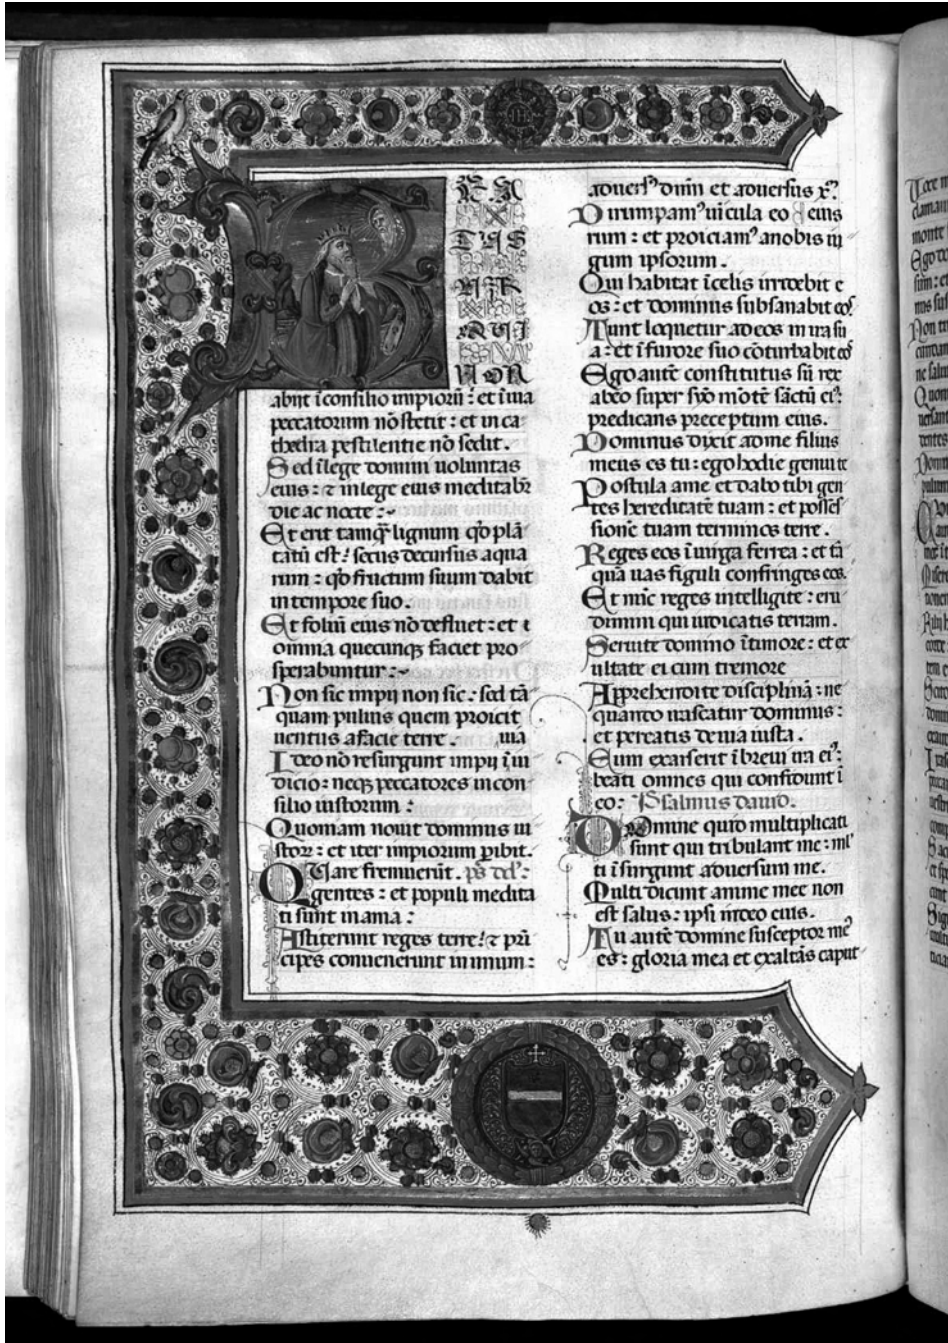 BEA
TUS
VIR
QUI
NON
abiit i consilio impioru: et i uia
peccatorum no stetit: et in ca
thedra pestilentie no sedit.
Sed i lege domini uoluntas
eius: et in lege eius meditabit
die ac nocte:
Et erit tamq lignum qd plā
tatū est: secus decursus aqua
rum: qd fructum suum dabit
in tempore suo.
Et foliū eius nō defluet: et
omnia quecunq faciet pro
sperabuntur:
Non sic impij non sic: sed tā
quam puluis quem proicit
uentus a facie terre.
Ideo nō resurgunt impij ī iu
dicio: neq peccatores in con
silio iustorum:
Quoniam nouit dominus iu
storum: et iter impiorum pibit.
Quare fremuerūt. ps dd:
gentes: et populi medita
ti sunt inania:
Astiterunt reges terre: et prī
cipes conuenerunt in unum:
aduers dnm et aduersus x
Dirumpam uīcula eo eius
rum: et proiciam a nobis iu
gum ipsorum.
Qui habitat ī celis irridebit e
os: et dominus subsanabit eos
Tunc loquetur ad eos in ira su
a: et ī furore suo cōturbabit eos
Ego autē constitutus sū rex
ab eo super syō mōtē sāctū ei:
predicans preceptum eius.
Dominus dixit ad me filius
meus es tu: ego hodie genui te
Postula a me et dabo tibi gen
tes hereditatē tuam: et posses
sionē tuam terminos terre.
Reges eos ī uirga ferrea: et tā
quā uas figuli confringes eos.
Et nūc reges intelligite: eru
dimini qui iudicatis terram.
Seruite domino ī timore: et ex
ultate ei cum tremore
Apprehendite disciplinā: ne
quando irascatur dominus:
et pereatis de uia iusta.
Cum exarserit ī breui ira ei:
beati omnes qui confidunt ī
eo: Psalmus dauid.
Domine quid multiplicati
sunt qui tribulant me: ml
ti īsurgunt aduersum me.
Multi dicunt anime mee non
est salus: ipsi in deo eius.
Tu autē domine susceptor me
es: gloria mea et exaltās caput